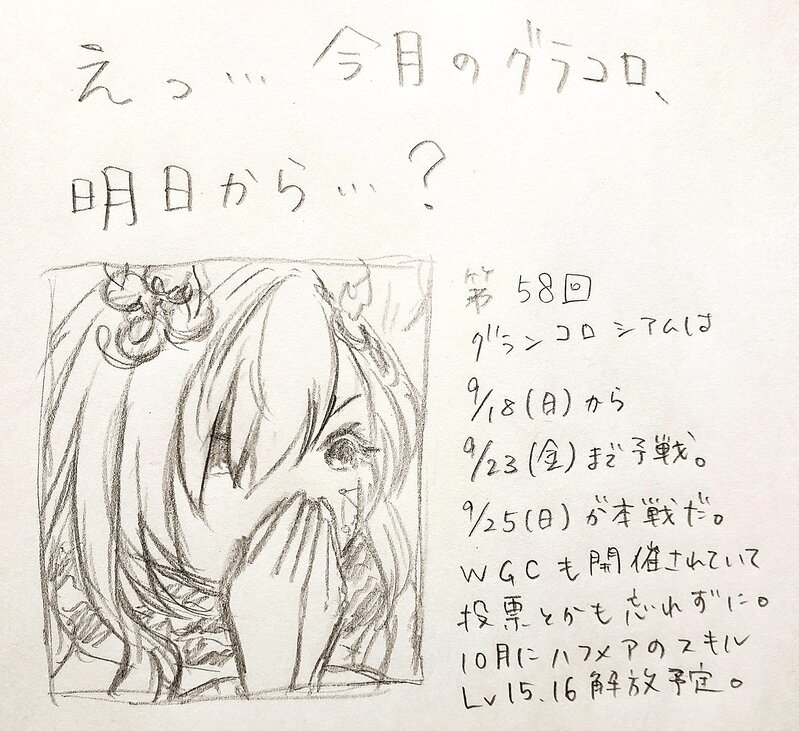 えっ… 今月のグラコロ、
明日から…？
第58回
グランコロシアムは
9/18(日)から
9/23(金)まで予戦。
9/25(日)が本戦だ。
WGCも開催されていて
投票とかも忘れずに。
10月にハフメアのスキル
Lv15.16解放予定。